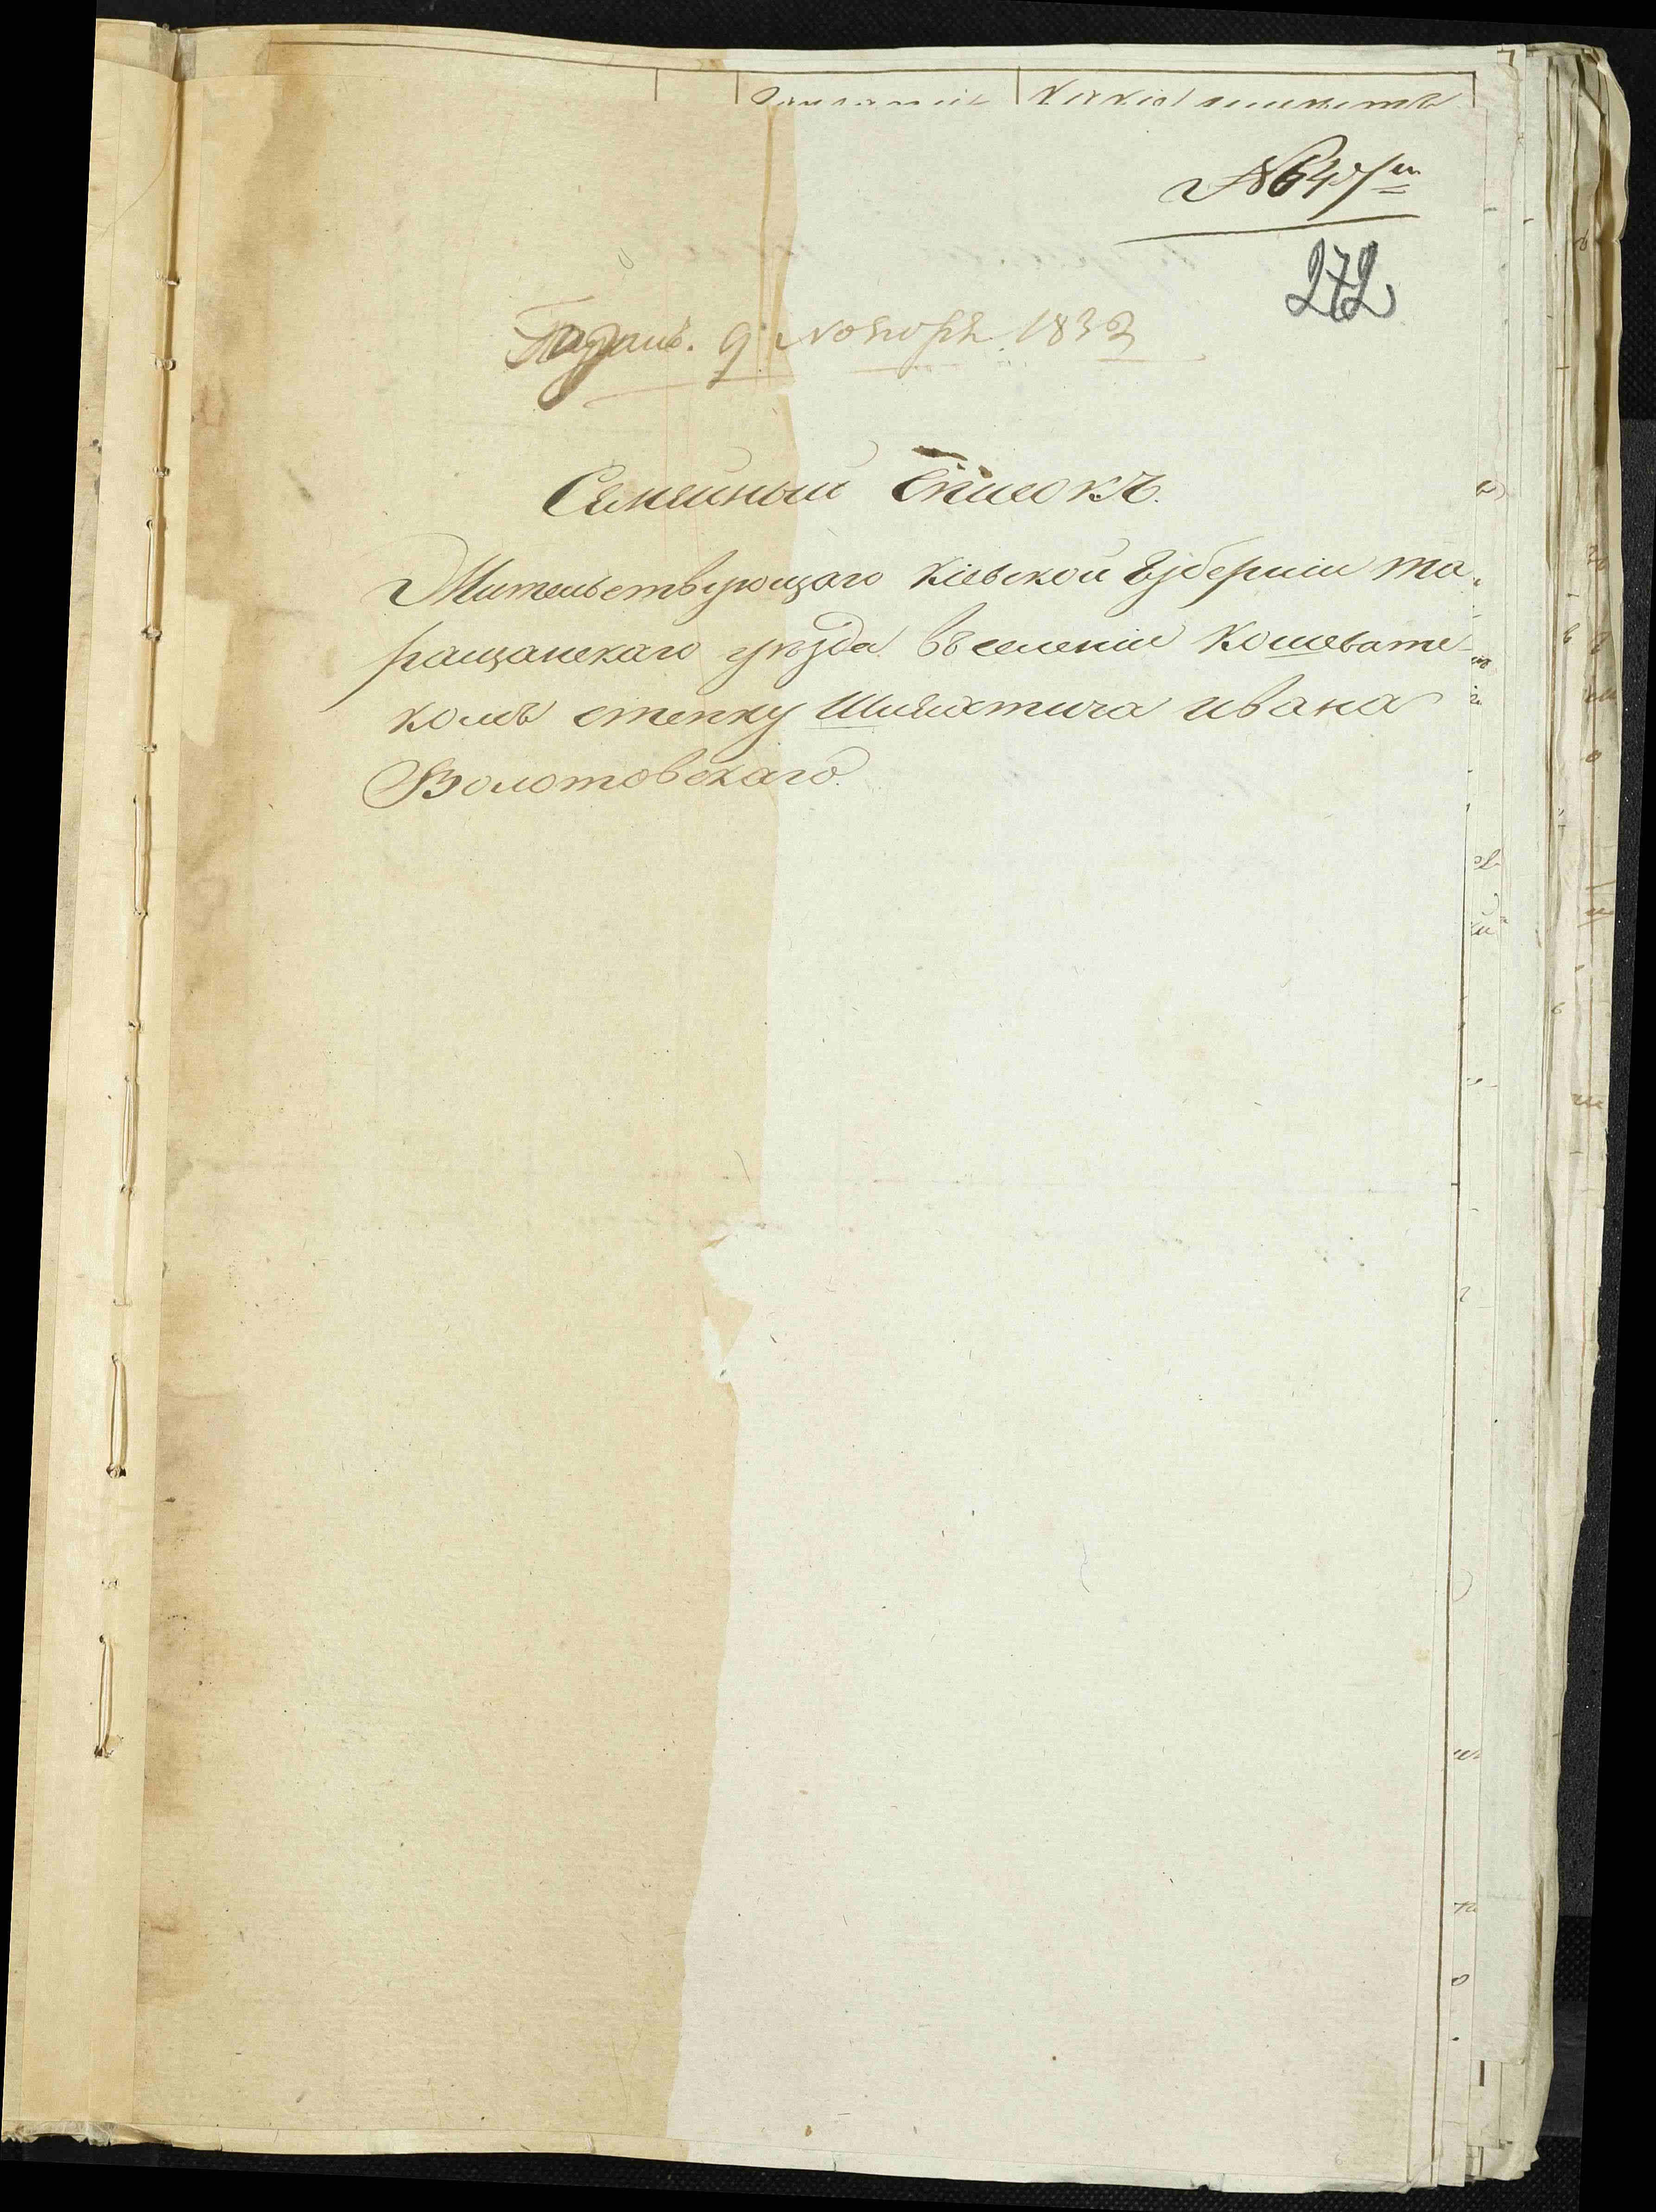 № 647
272
9 Ноября 1832
Семейный Списокъ.
Жительствующаго Кіевской Губерніи Та-
ращанскаго уѣзда въ селеніи Кошевате-
комъ степку Шляхтича Ивана
Золотовскаго.